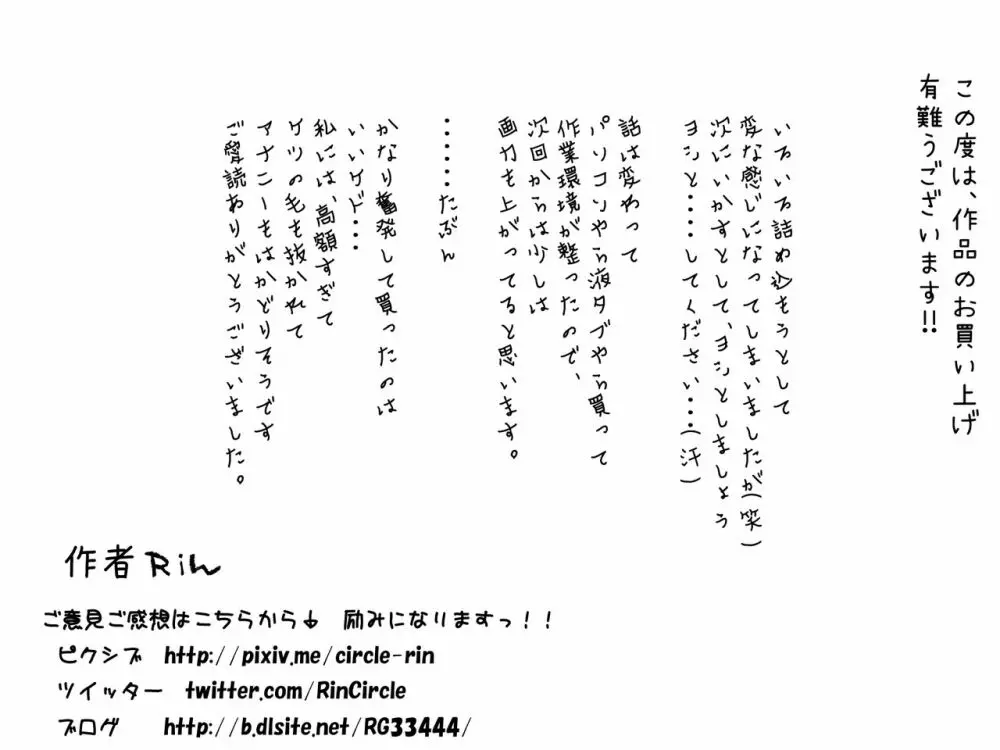 この度は、作品のお買い上げ
有難うございます!!
いろいろ詰め込もうとして
変な感じになってしまいましたが(笑)
次にいかすとして、ヨシとしましょう
ヨシと・・・・してください・・・(汗)
話は変わって
パソコンやら液タブやら買って
作業環境が整ったので、
次回からは少しは
画力も上がってると思います。
・・・・・たぶん
かなり奮発して買ったのは
いいケド・・・
私には、高額すぎて
ケツの毛も抜かれて
アナニーもはかどりそうです
ご愛読ありがとうございました。
作者Rin
ご意見ご感想はこちらから↓ 励みになりますっ!!
ピクシブ http://pixiv.me/circle-rin
ツイッター twitter.com/RinCircle
ブログ http://b.dlsite.net/RG33444/